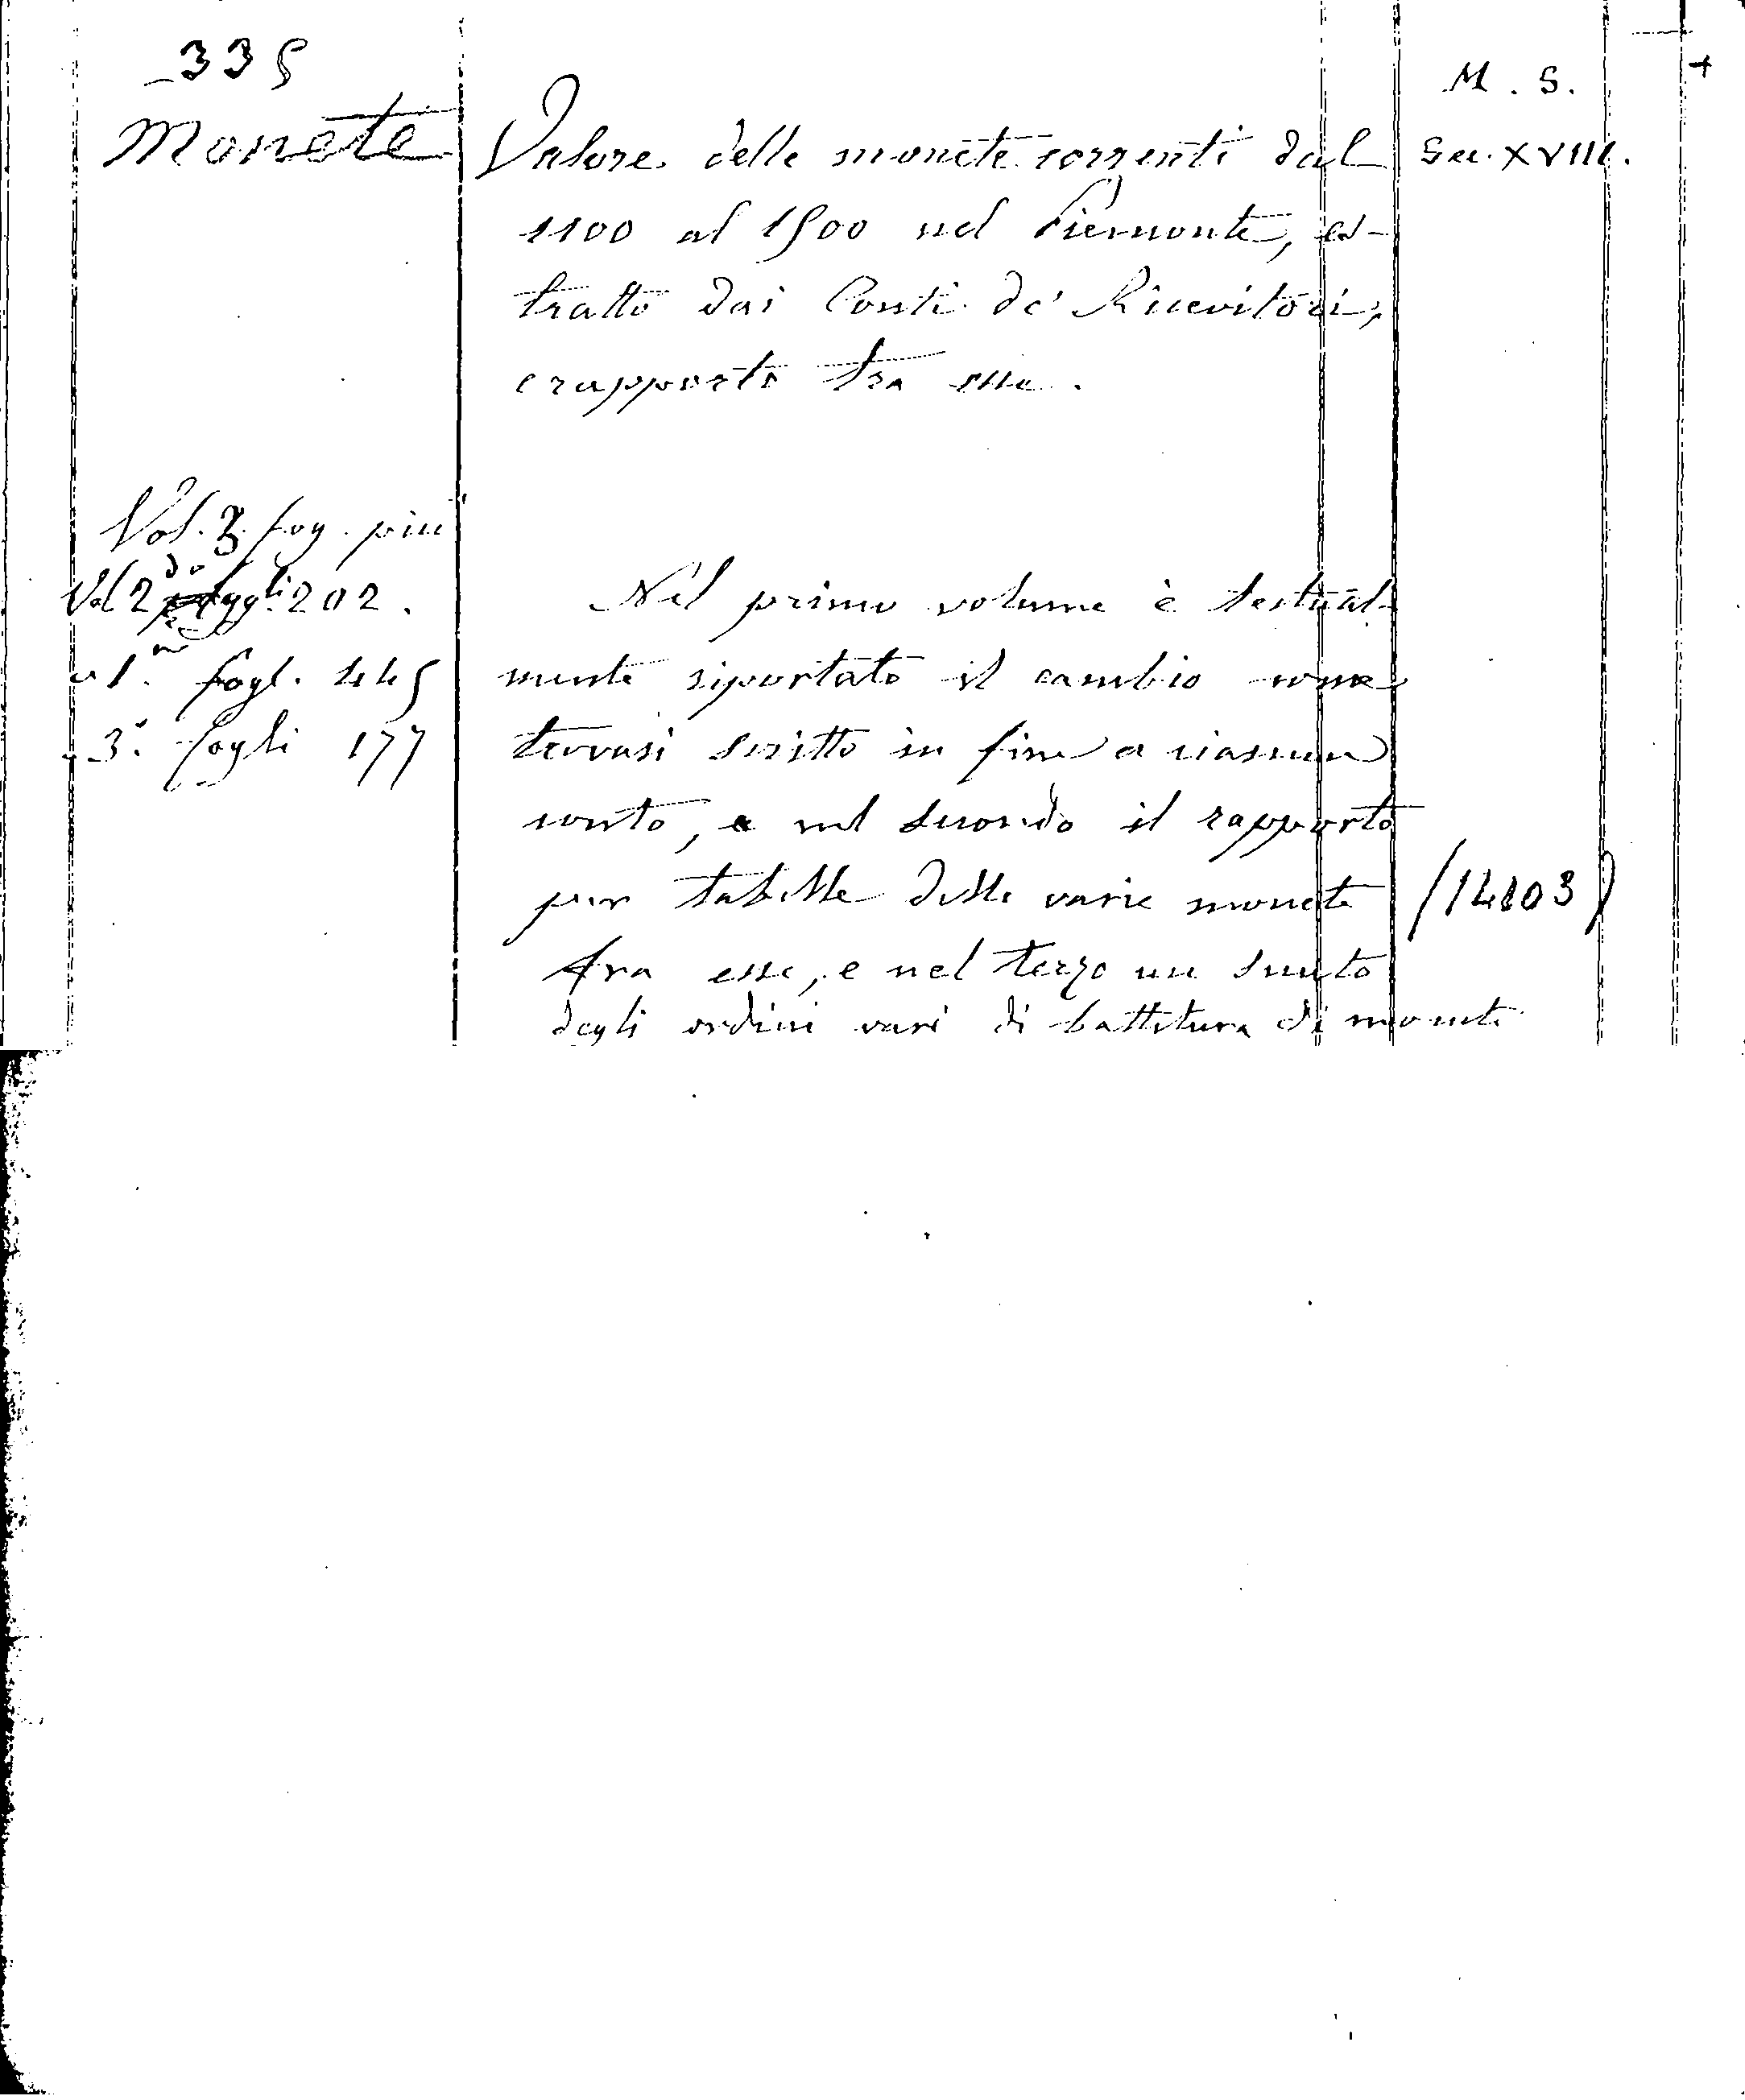 335
M. S.
Monete
Valore delle monete correnti dal
Sec. XVIII.
1100 al 1500 nel Piemonte, es-
tratto dai Conti de' Ricevitori,
e rapporto tra esse.
Vol. 3. fog. piu
Vol 2 do fogli 202.
1.mo fogl. 445
3.o fogli 177
Nel primo volume è testual-
mente riportato il cambio come
trovasi scritto in fine a ciascun
conto, e nel secondo il rapporto
per tabelle delle varie monete
(14803)
fra esse, e nel terzo un sunto
degli ordini vari di battitura di monete